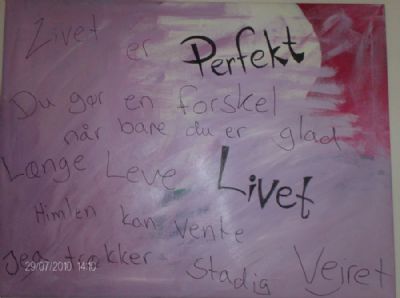 Livet er Perfekt
Du gør en forskel
når bare du er glad
Længe Leve Livet
Himlen kan vente
Jeg trækker stadig Vejret
29/07/2010 14:10